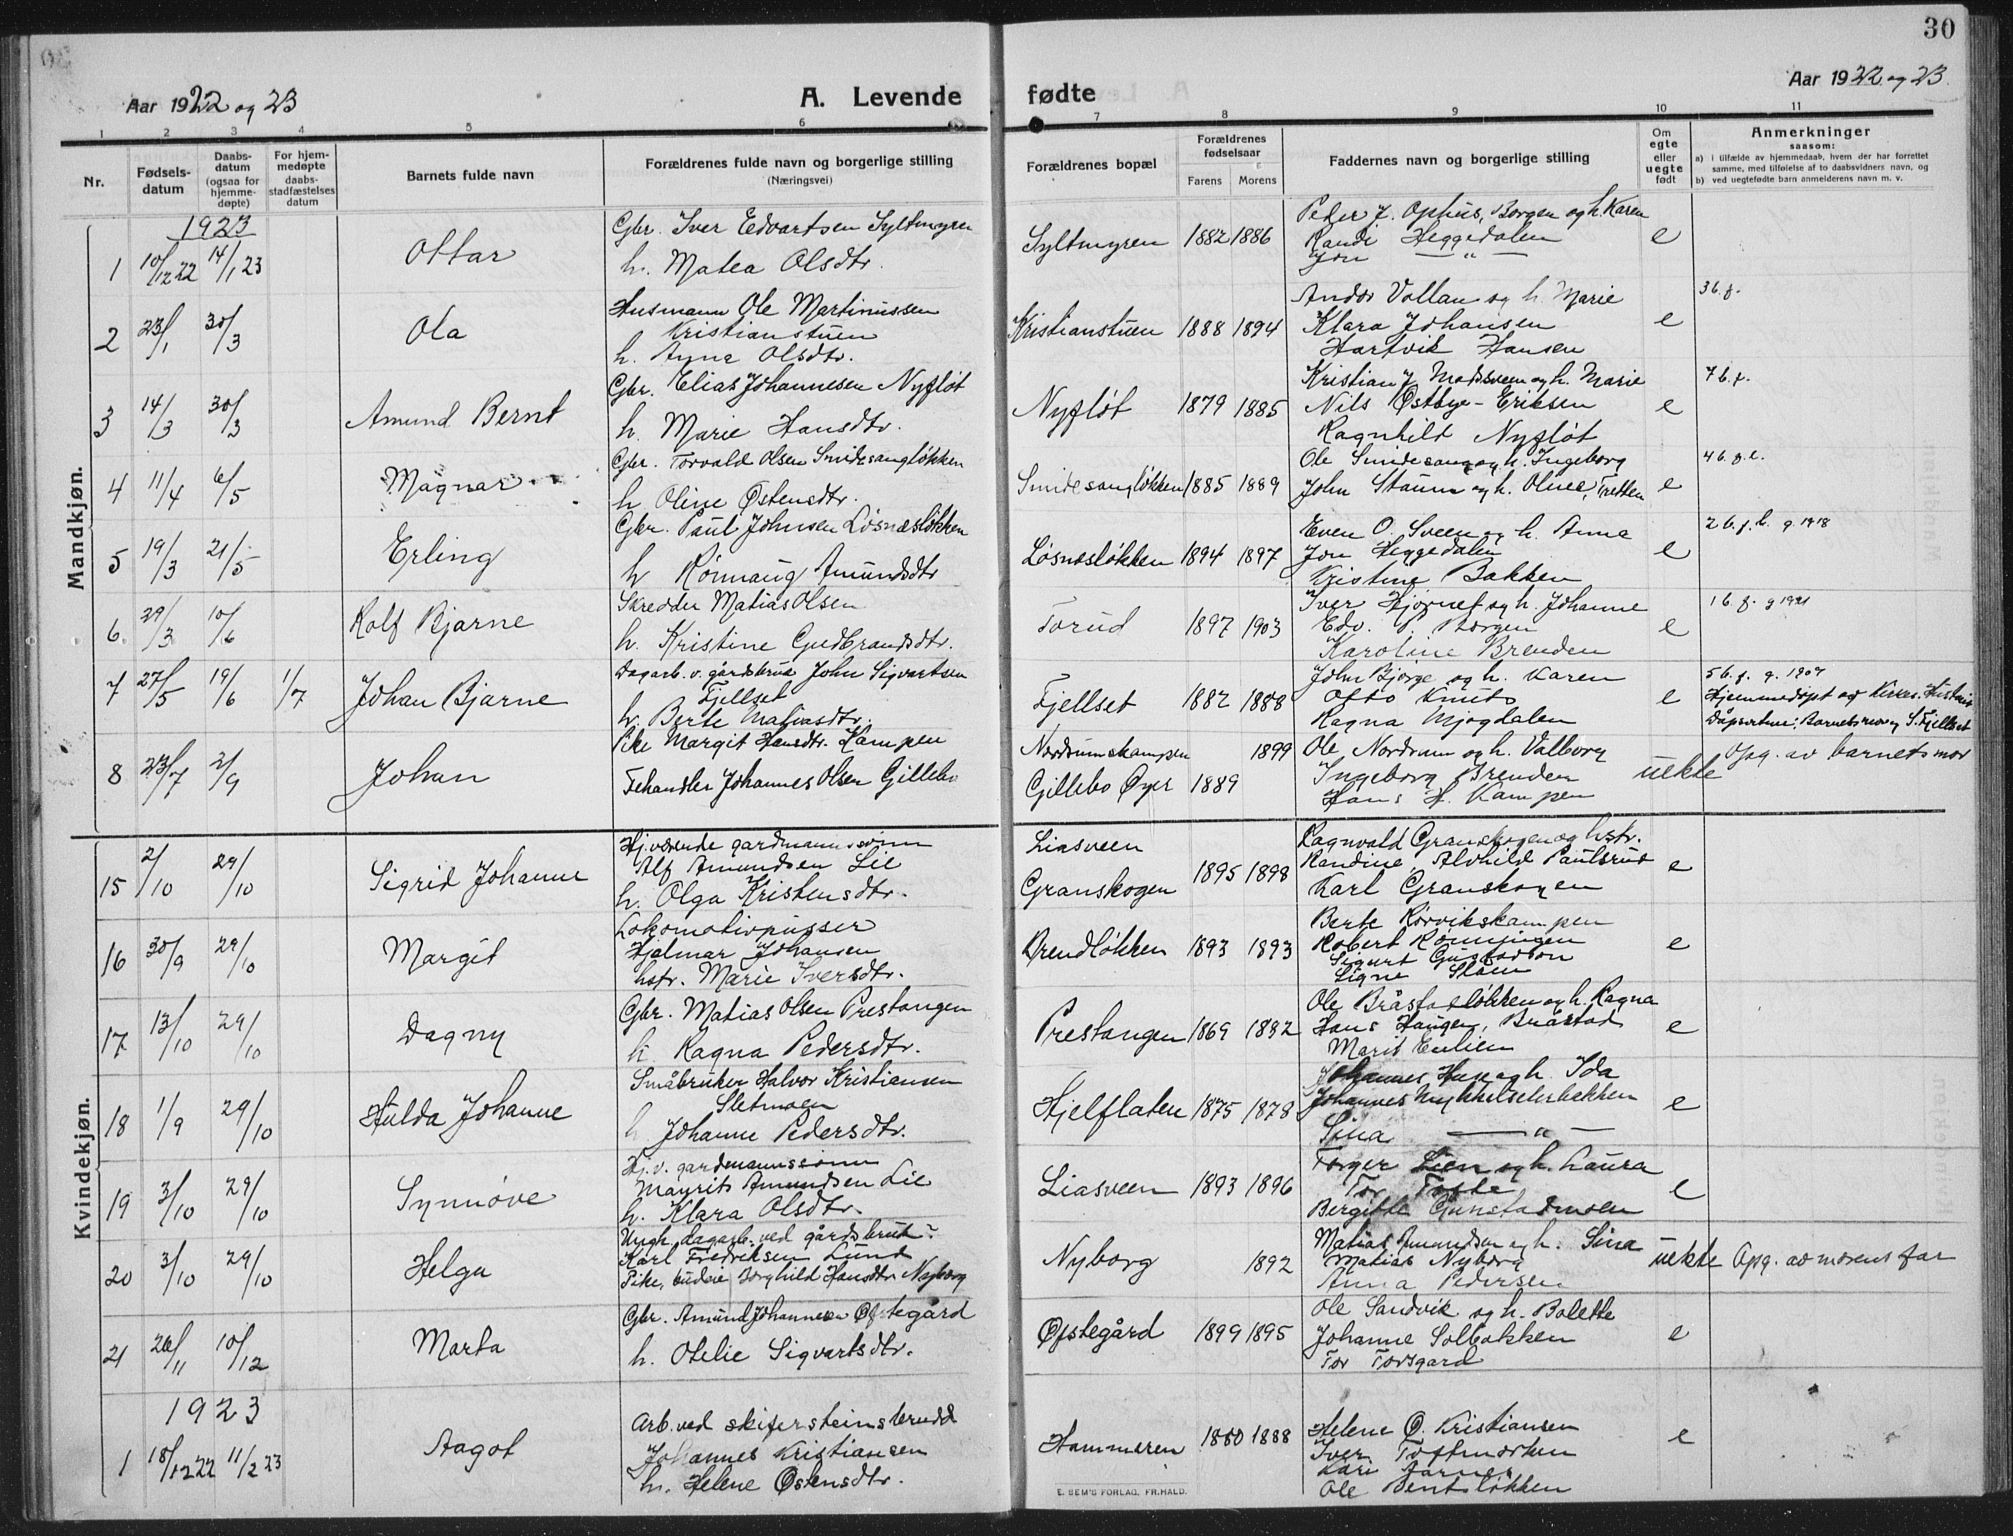 30
Aar 1922 og 23
A. Levende
fødte
Aar 1922 og 23.
1 2 3 4 5 6
7 8 9 10 11
Nr.
Fødsels-
datum
Daabs-
datum
(ogsaa for
hjemme-
døpte)
For hjem-
medøpte
daabs-
stadfæstelses
datum
Barnets fulde navn
Forældrenes fulde navn og borgerlige stilling
(Næringsvei)
Forældrenes bopæl
Forældrenes
fødselsaar
Farens Morens
Faddernes navn og borgerlige stilling
Om
egte
eller
uegte
født
Anmerkninger
saasom:
a) i tilfælde av hjemmedaab, hvem der har forrettet
samme, med tilføielse af to daabsvidners navn, og
b) ved uegtefødte barn anmelderens navn m. v.
Mandkjøn.
1923
1 10/12 22 14/1 23 Ottar
Gbr. Iver Edvartsen Syltmyren
h. Matea Olsdtr.
Syltmyren 1882 1886
Peder J. Ophus, Borgen og h. Karen
Randi Heggedalen
Jon — " —
e
2 23/1 30/3 Ola
Husmann Ole Martinussen
Kristianstuen
h. Anne Olsdtr.
Kristianstuen 1888 1894
Andor Vollan og h. Marie
Klara Johansen
Hartvik Hansen
e
3 b. f.
3 14/3 30/3 Amund Bernt
Gbr. Elias Johannesen Nyfløt
h. Marie Hansdtr.
Nyfløt 1879 1885
Kristian J. Madsveen og h. Marie
Nils Østbye-Eriksen
Ragnhild Nyfløt
e
7 b. f.
4 11/4 6/5 Magnar
Gbr. Torvald Olsen Smidesangløkken
h. Oline Østensdtr.
Smidesangløkken 1885 1889
Ole Smidesang og h. Ingeborg
John Staum og h. Olnee, Tretten
e
4 b. f. e.
5 19/3 21/5 Erling
Gbr. Paul Johnsen Løsnesløkken
h. Rønnaug Amundsdtr
Løsnesløkken 1894 1897
Even O. Sveen og h. Anna
Jon Heggedalen
Kristine Bakken
e
2 b. f. h. g. 1918
6. 29/3 10/6 Rolf Bjarne
Skredder Matias Olsen
h. Kristine Gudbrandsdtr.
Torud 1897 1903
Iver Hjørnet og h. Johanne
Edv. P. Borgen
Karoline Brenden
e
1 b. f. g 1921
7 27/5 19/6 1/7 Johan Bjarne
Dagarb. v. gårdsbruk John Sigvartsen
Fjellset
h. Berte Mathiasdtr.
Fjellset 1882 1888
John Bjørge og h. Karen
Otto Knuts
Ragna Mjøgdalen
e
5 b. f. g. 1907
Hjemmedøpt av Kirkes.
Barnets mor og S. Fjellset
8 23/7 2/9 Johan
Pike Margit Hansdtr. Kampen
Fehandler Johannes Olsen Gillebo
Nordrumskampen 1899
Gillebo Øyer 1889
Ole Nordrum og h. Valborg
Ingeborg Brenden
Hans H. Kampen
uekte
Opg. av barnets mor
Kvindekjøn.
15 2/10 29/10 Sigrid Johanne
Hj.værende gardmannssønn
Alf Amundsen Lie
h. Olga Kristensdtr.
Liasveen
Granskogen 1895 1898
Ragnvald Granskogen og hstr.
Randine, Alvhild Paulsrud
Karl Granskogen
e
16 30/9 29/10 Margit
Lokomotivpusser
Hjalmar Johansen
hstr. Marie Iversdtr.
Brendløkken 1893 1893
Berte Rørvikskampen
Robert Rønningen
Sigurt Gustadson
Signe Slåen
e
17 13/10 29/10 Dagny
Gbr. Matias Olsen Prestangen
h. Ragna Pedersdtr.
Prestangen 1869 1882
Ole Bråstadløkken og h. Ragna
Hans Haugen, Bråstad
Marit Enlien
e
18 1/9 29/10 Hulda Johanne
Småbruker Halvor Kristiansen
Sletmoen
h Johanne Pedersdtr.
Hjelflaten 1875 1878
Johannes Huse og h. Ida
Johannes Mykkelseterbakken
Sina — " —
e
19 3/10 29/10 Synnøve
Hj. v. gardmannssønn
Mauritz Amundsen Lie
h. Klara Olsdtr.
Liasveen 1893 1896
Torger Lien og h. Laura
Tor Tofte
Bergitte Gunstadmoen
e
20 3/10 29/10 Helga
Ungk. dagarb. ved gårdsbruk:
Karl Fredriksen Lund
Pike, budeie Borghild Hansdtr Nyborg
Nyborg 1892
Matias Amundsen og h. Sina
Matias Nyborg
Anna Pedersen
uekte Opg. av morens far
21 26/11 10/12 Marta
Gbr. Amund Johannesen Øfstegård
h. Otelie Sigvartsdtr.
Øfstegård 1899 1895
Ole Sandvik og h. Bolette
Johanne Solbakken
Tor Torsgard
e
1923
1 18/12 22 11/2 23 Aagot
Arb. ved skifersteinsbrudd
Johannes Kristiansen
h. Helene Østensdtr.
Hammeren 1880 1888
Helene O. Kristiansen
Iver Toftmorken
Kari Jarnes
Ole Bentsløkken
e
E. SEM'S FORLAG, FR.HALD.